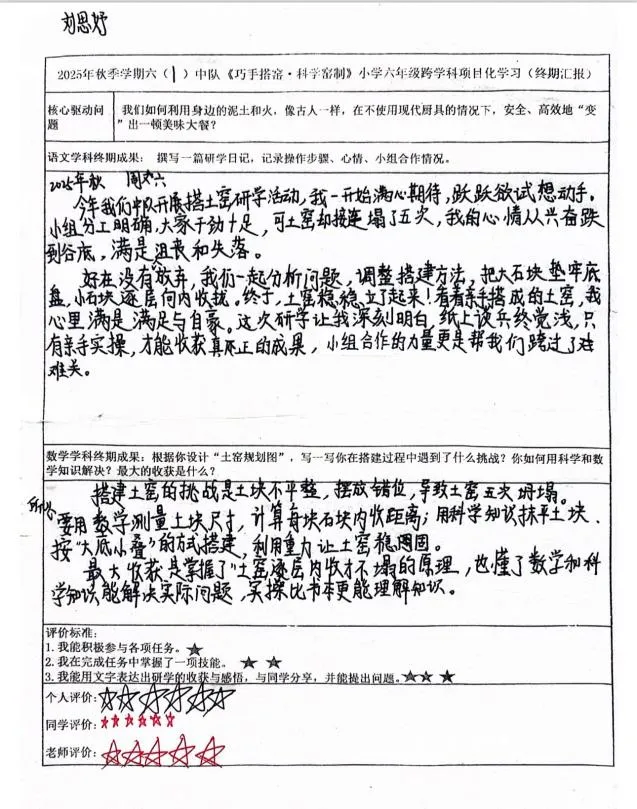 刘思妤
2025年秋季学期六（1）中队《巧手搭窑·科学窑制》小学六年级跨学科项目化学习（终期汇报）
核心驱动问题
我们如何利用身边的泥土和火，像古人一样，在不使用现代厨具的情况下，安全、高效地“变
”出一顿美味大餐？
语文学科终期成果： 撰写一篇研学日记，记录操作步骤、心情、小组合作情况。
2025年秋 周六
今年我们中队开展搭土窑研学活动，我一开始满心期待，跃跃欲试想动手。
小组分工明确，大家干劲十足，可土窑却接连塌了五次，我的心情从兴奋跌
到谷底，满是沮丧和失落。
好在没有放弃，我们一起分析问题，调整搭建方法，把大石块垫牢底
盘，小石块逐层向内收拢。终于，土窑稳稳立了起来！看着亲手搭成的土窑，我
心里满是满足与自豪。这次研学让我深刻明白，纸上谈兵终觉浅，只
有亲手实操，才能收获真正的成果，小组合作的力量更是帮我们跨过了
难关。
数学学科终期成果：根据你设计“土窑规划图”，写一写你在搭建过程中遇到了什么挑战？你如何用科学和数
学知识解决？最大的收获是什么？
搭建土窑的挑战是土块不平整，摆放错位，导致土窑五次坍塌。
所以
要用数学测量土块尺寸，计算每块石块内收距离；用科学知识抹平土块、
按“大底小叠”的方式搭建，利用重力让土窑稳固。
最大收获是掌握了“土窑逐层内收才不塌的原理，也懂了数学和科
学知识能解决实际问题，实操比书本更能理解知识。
评价标准：
1. 我能积极参与各项任务。★
2. 我在完成任务中掌握了一项技能。 ★ ★
3. 我能用文字表达出研学的收获与感悟，与同学分享，并能提出问题。★★ ★
个人评价：
同学评价：
老师评价：